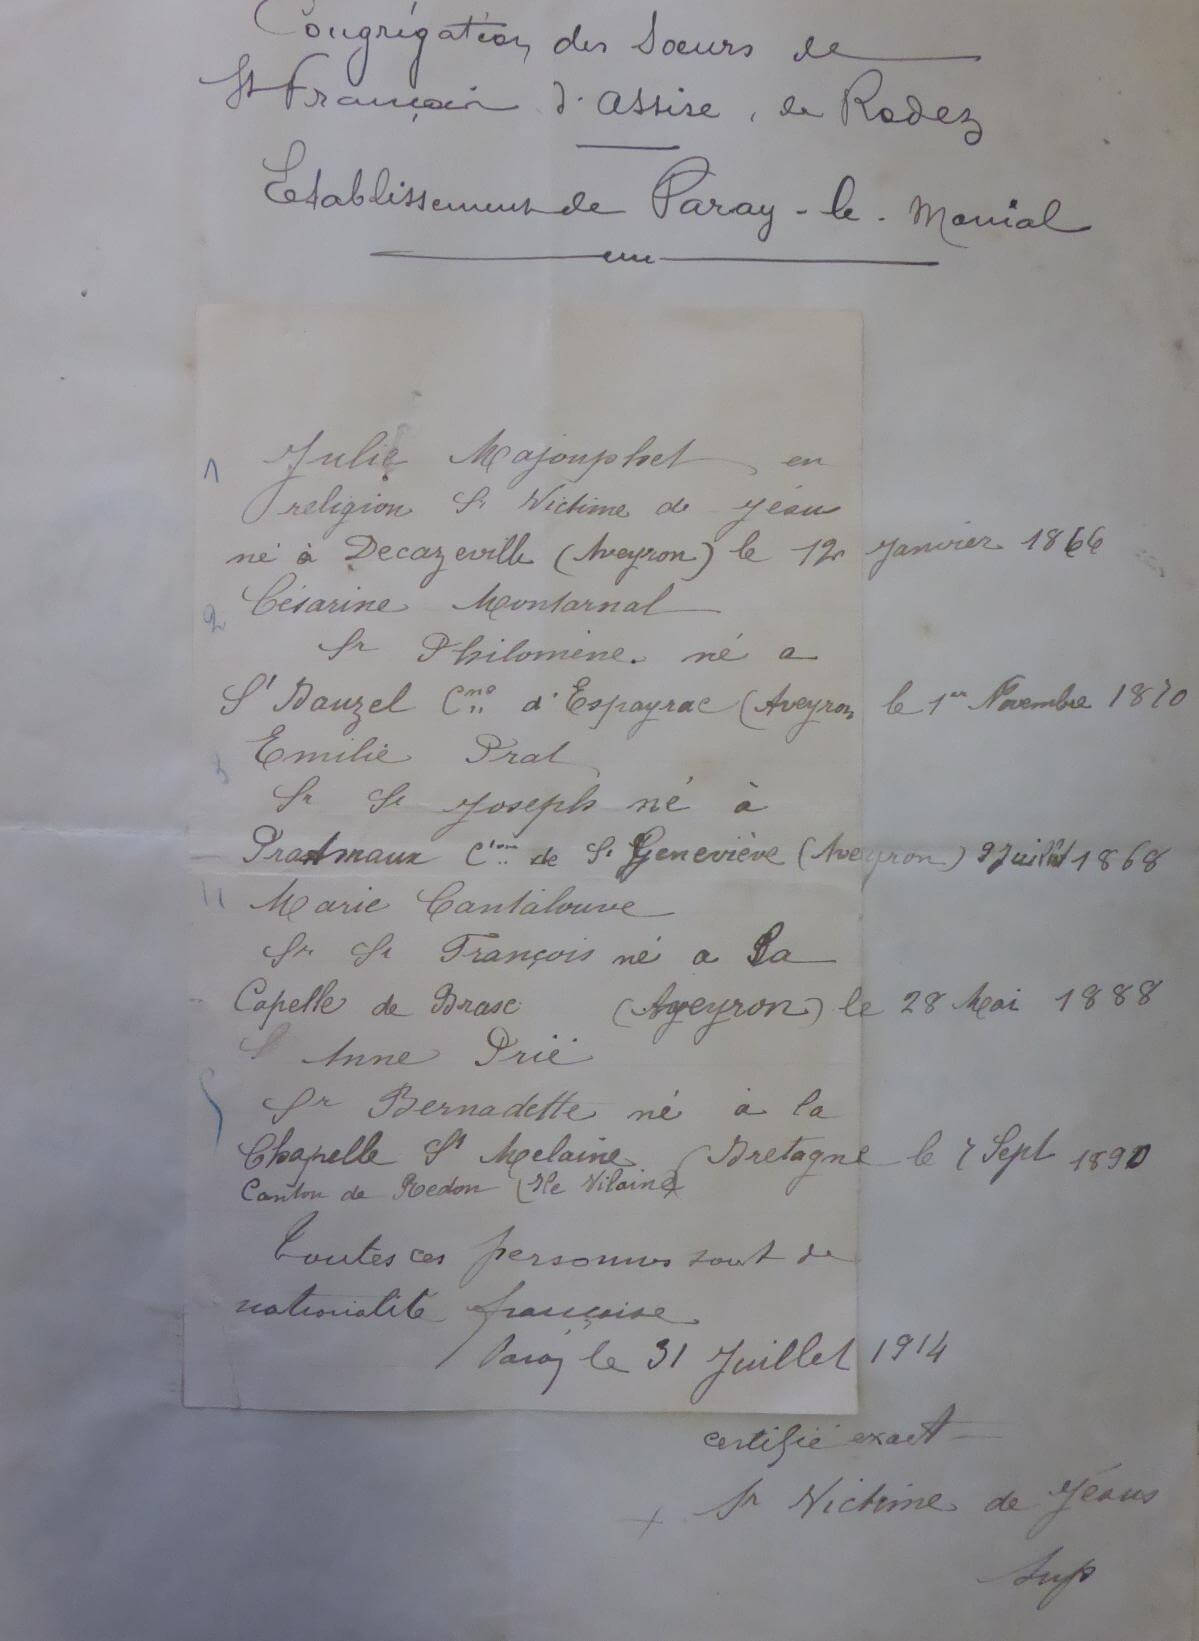 Congrégation des Soeurs de
St François d'Assise, de Rodez
Etablissement de Paray-le-Monial
1 Julie Majouphet en
religion Sr Victime de Jésus
né à Decazeville (Aveyron) le 12 Janvier 1866
2 Césarine Montarnal
Sr Philomène. né a
St Dauzel Cne d'Espayrac (Aveyron le 1er Novembre 1870
3 Emilie Prat
Sr St Joseph né à
Pratmaux de St Geneviève (Aveyron) 9 Juillet 1868
Marie Cantalouve
Sr St François né a La
Capelle de Brasc (Aveyron) le 28 Mai 1888
5 Anne Prié
Sr Bernadette né à la
Chapelle St Melaine (Bretagne le 7 Sept 1890
Canton de Redon (Ile Vilaine)
Toutes ces personnes sont de
nationalité française
Paray le 31 Juillet 1914
certifié exact
Sr Victime de Jésus
Sup